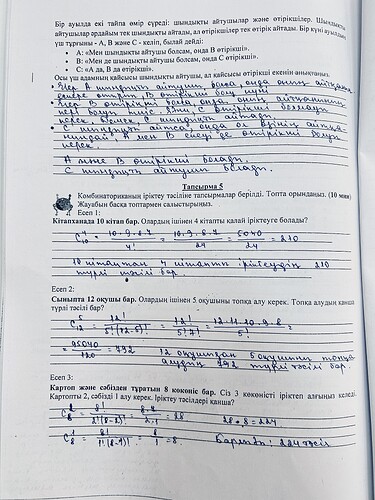 Бір ауылда екі тайпа өмір сүреді: шындықты айтушылар және өтірікшілер. Шындықты
айтушылар әрдайым тек шындықты айтады, ал өтірікшілер тек өтірік айтады. Бір күні ауылдың
үш тұрғыны - А, В және С - келіп, былай дейді:
• А: «Мен шындықты айтушы болсам, онда В өтірікші».
• В: «Мен де шындықты айтушы болсам, онда С өтірікші».
• С: «А да, В да өтірікші».
Осы үш адамның қайсысы шындықты айтушы, ал қайсысы өтірікші екенін анықтаңыз.
• Егер А шындықты айтушы болса, онда оның айтқаны
В өтірікші болу
• Егер В өтірікші болса, онда оның айтқанының
болуы тиіс. Яғни С өтірікші болмауы
керек, В шындықты айтады.
• С шындықты айтса, онда ол өзінің айтқа-
А мен В екеуі де өтірікші болуы
керек.
А және В өтірікші болады.
С шындықты айтушы болады.
Тапсырма 5
Комбинаториканың іріктеу тәсіліне тапсырмалар берілді. Топта орындаңыз. (10 мин)
Жауабын басқа топтармен салыстырыңыз.
Есеп 1:
Кітапханада 10 кітап бар. Олардың ішінен 4 кітапты қалай іріктеуге болады?
C₁₀⁴ = 10·9·8·7 / 4! = 10·9·8·7 / 24 = 5040 / 24 = 210
10 кітаптан 4 кітапты іріктеудің 210
түрлі тәсілі бар.
Есеп 2:
Сыныпта 12 оқушы бар. Олардың ішінен 5 оқушыны топқа алу керек. Топқа алудың қанша
түрлі тәсілі бар?
C₁₂⁵ = 12! / 5!(12-5)! = 12! / 5!7! = 12·11·10·9·8 / 5! =
= 95040 / 120 = 792 12 оқушыдан 5 оқушыны топқа
алудың 792 түрлі тәсілі бар.
Есеп 3:
Картоп және сәбізден тұратын 8 көкөніс бар. Сіз 3 көкөністі іріктеп алғыңыз келеді.
Картопты 2, сәбізді 1 алу керек. Іріктеу тәсілдері қанша?
C₈² = 8! / 2!(8-2)! = 8·7 / 2·1 = 28 28*8=224
C₈¹ = 8! / 1!(8-1)! = 8 / 1 = 8 Барлығы: 224 тәсіл